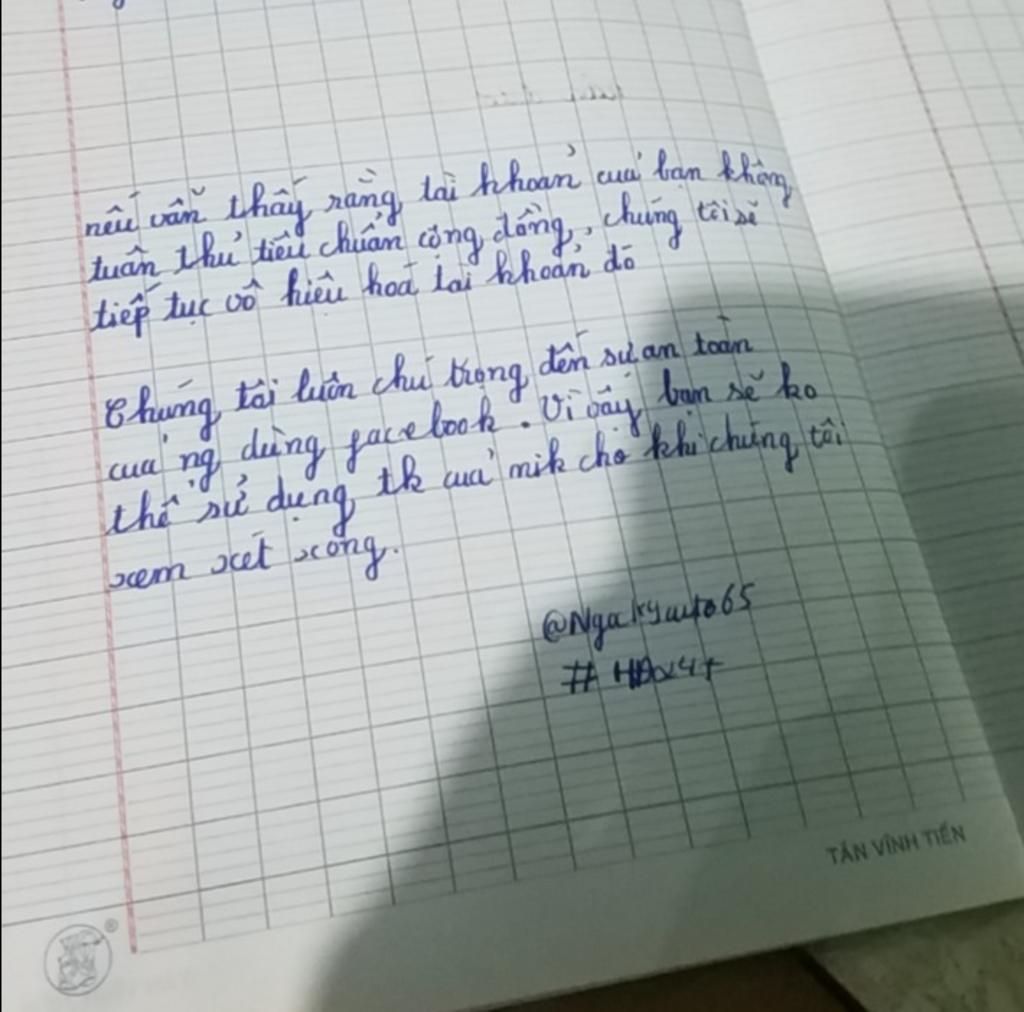 nếu vẫn thấy rằng tài khoản của bạn không
tuân thủ tiêu chuẩn cộng đồng, chúng tôi sẽ
tiếp tục vô hiệu hoá tài khoản đó
Chúng tôi luôn chú trọng đến sự an toàn
của ng dùng facebook. Vì vậy bạn sẽ ko
thể sử dụng tk của mik cho khi chúng tôi
xem xét xong.
@Ngakyauto65
TÂN VĨNH TIẾN